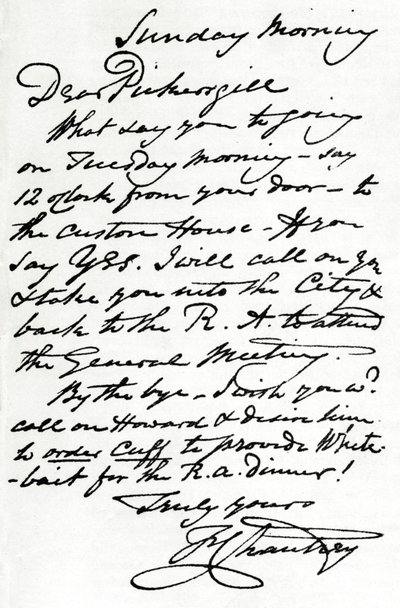 Sunday Morning
Dear Pickersgill
What say you to going
on Tuesday Morning – say
12 oClock from your door – to
the Custom House – If you
say YES. I will call on you
& take you into the City &
back to the R. A. to attend
the General Meeting.
By the bye – I wish you wd.
call on Howard & desire him
to order Cuff to provide White-
-bait for the R.A. dinner!
Truly yours
F Chantrey